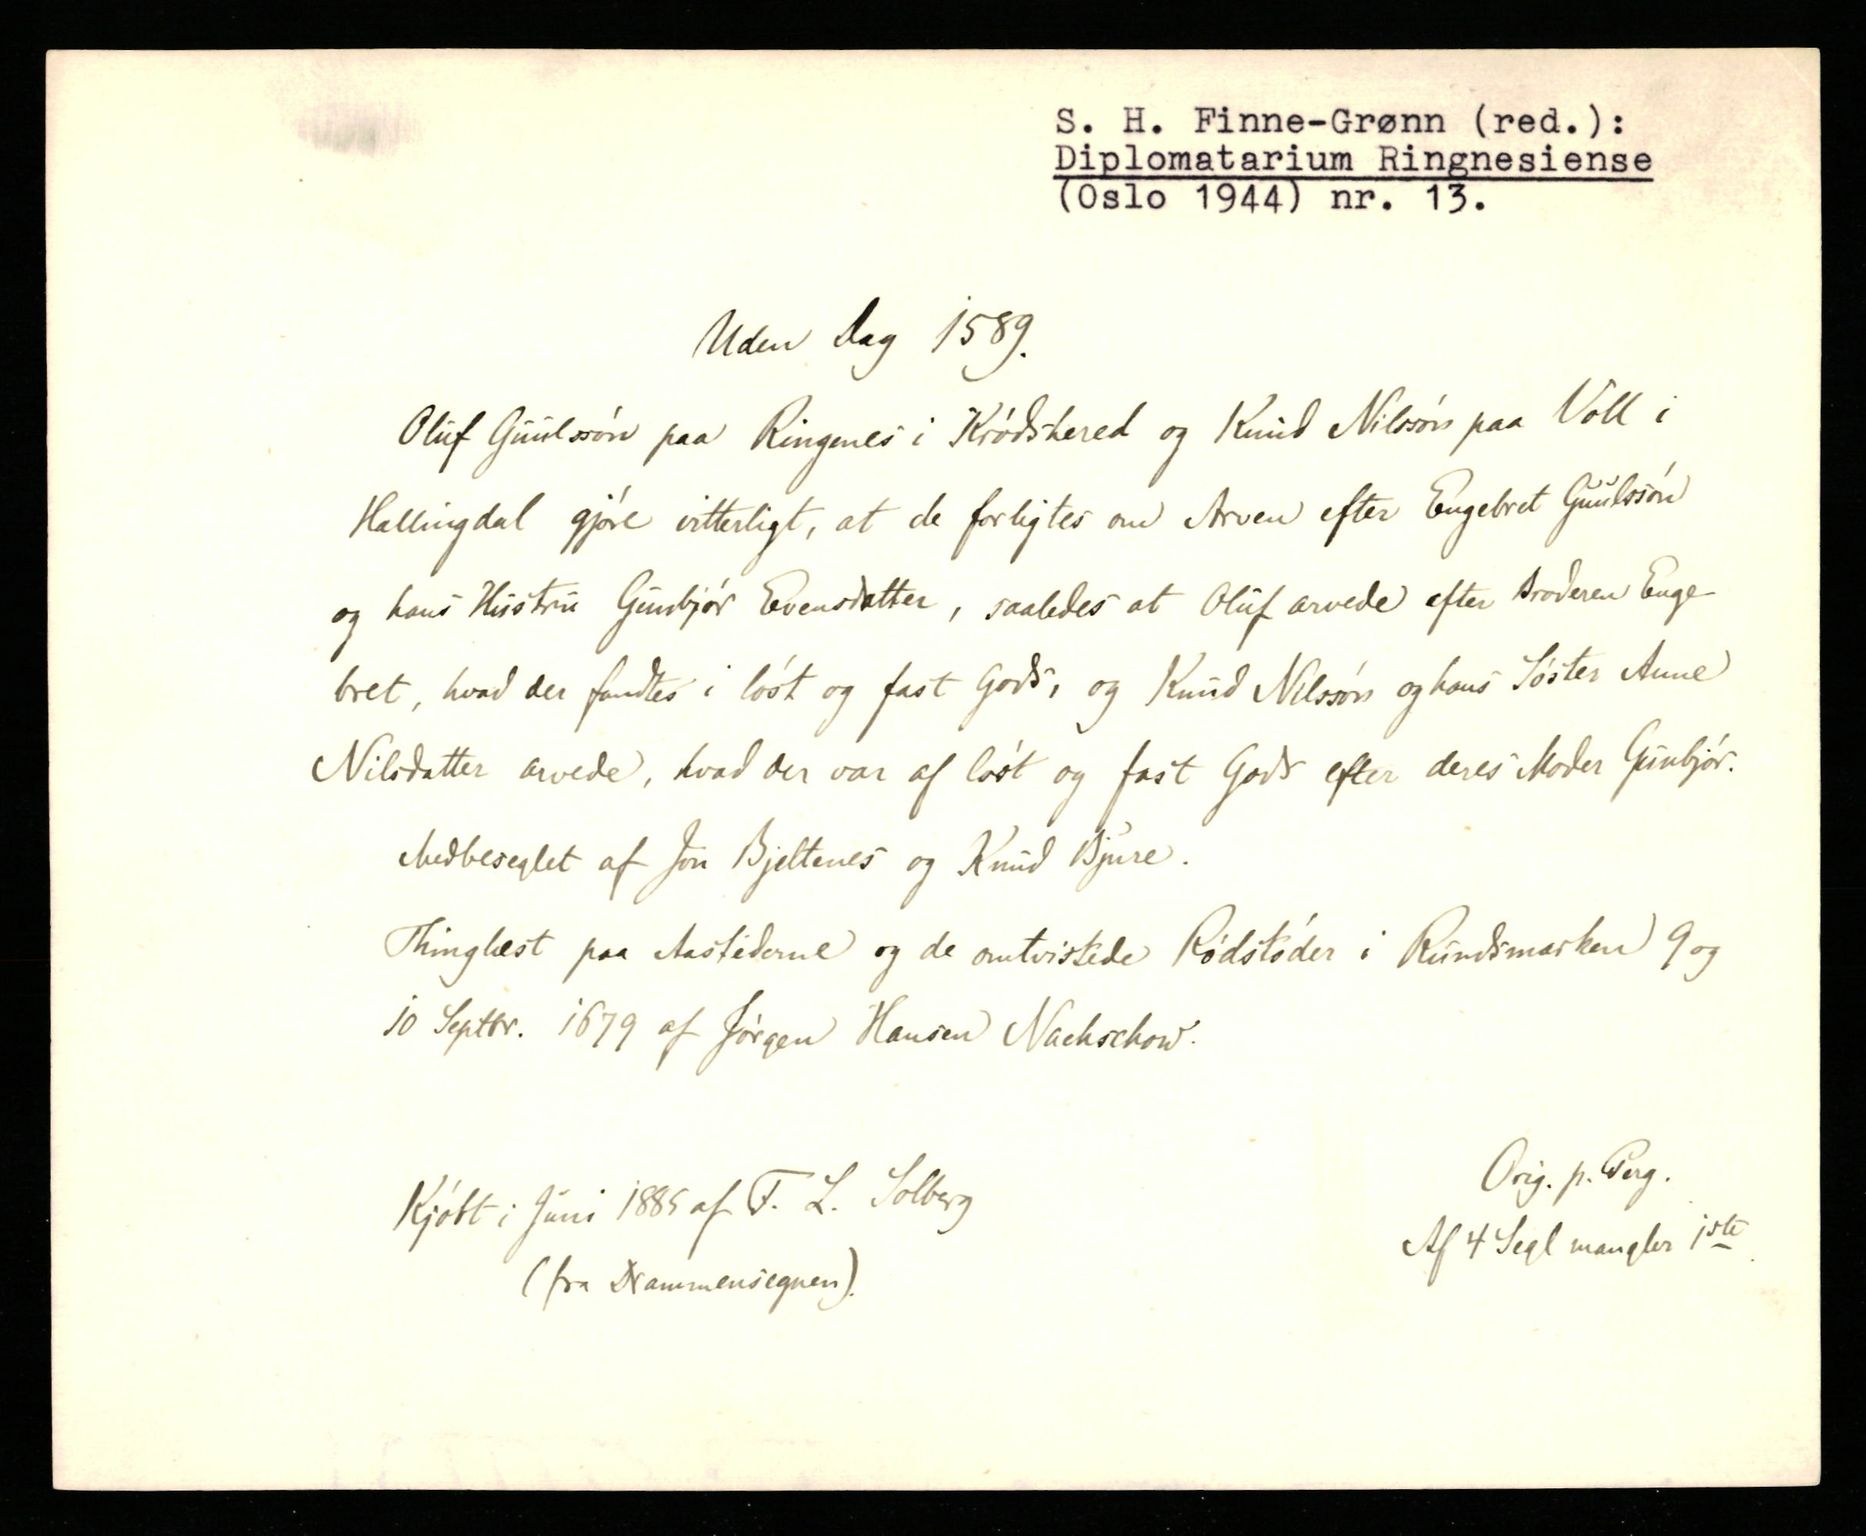 S. H. Finne-Grønn (red.):
Diplomatarium Ringnesiense
(Oslo 1944) nr. 13.
Uden Dag 1589.
Oluf Guulssøn paa Ringenes i Krødshered og Knud Nilssøn paa Voll i
Hallingdal gjøre vitterligt, at de forligtes om Arven efter Engebret Guulssøn
og hans Hustru Gunbjør Evensdatter, saaledes at Oluf arvede efter Broderen Enge-
bret, hvad der fandtes i løst og fast Gods, og Knud Nilssøn og hans Søster Anne
Nilsdatter arvede, hvad der var af løst og fast Gods efter deres Moder Gunbjør.
Medbeseglet af Jon Bjeltenes og Knud Bjure.
Thinglæst paa Aastederne og de omtvistede Rødstøder i Rundsmarken 9 og
10 Septbr. 1679 af Jørgen Hansen Nachschow.
Kjøbt i Juni 1885 af F. L. Solberg
(fra Drammensegnen).
Orig. p. Perg.
Af 4 Segl mangler 1ste